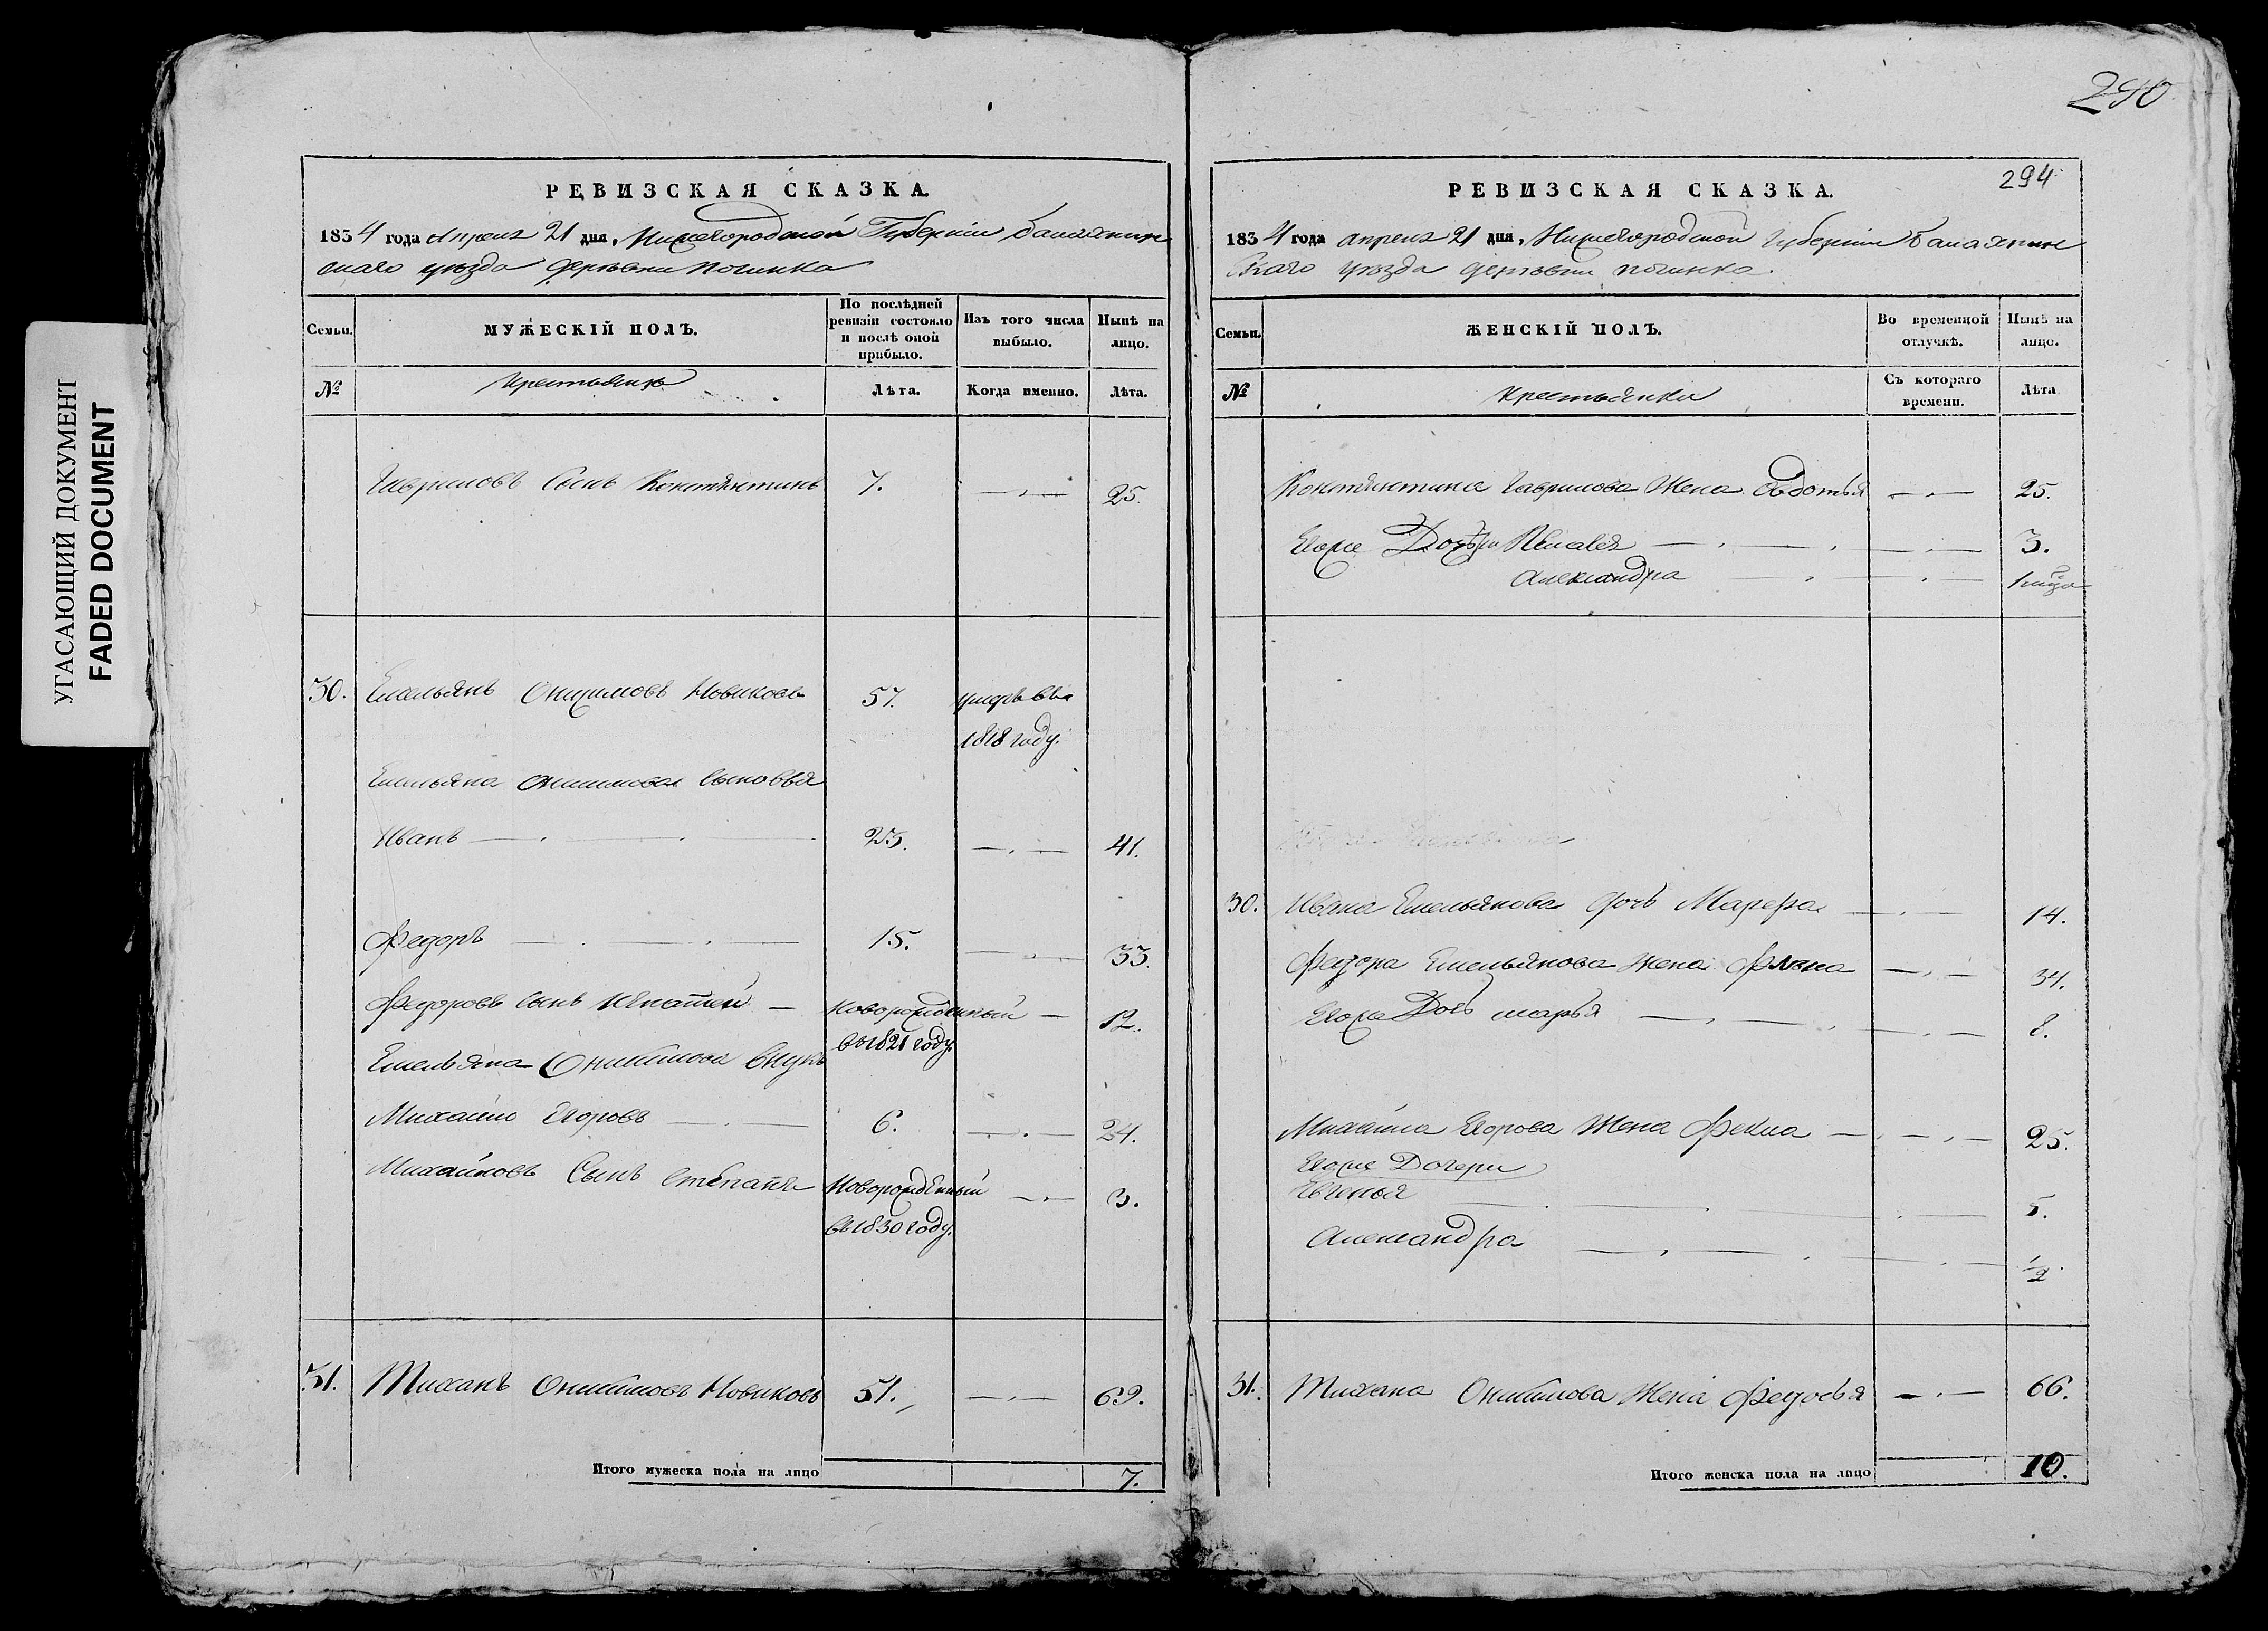 УГАСАЮЩИЙ ДОКУМЕНТ
FADED DOCUMENT
240
РЕВИЗСКАЯ СКАЗКА.
1834 года Апреля 21 дня, Нижегородской Губернiи балахнин
скаго уезда деревни починка
Семьи.
МУЖЕСКIЙ ПОЛЪ.
По послѣдней ревизiи состояло и послѣ оной прибыло.
Изъ того числа выбыло.
Нынѣ на лицо.
№
Крестьянъ
Лѣта.
Когда именно.
Лѣта.
Гавриловъ Сынъ Констянтинъ 7. 25.
30. Емельянъ Онисимовъ Новиковъ 57. умеръ въ
1818 году.
Емельяна Онисимова Сыновья
Иванъ 23. 41.
Федоръ 15. 33.
Федоровъ сынъ Игнатей новорожденный 12.
въ 1821 году.
Емельяна Онисимова Внукъ
Михайло Егоровъ 6. 24.
Михайловъ Сынъ Степанъ Новорожденный 3.
въ 1830 году.
31. Тиханъ Онисимовъ Новиковъ 51. 69.
Итого мужеска пола на лицо 7.
294
РЕВИЗСКАЯ СКАЗКА.
1834 года апреля 21 дня, Нижегородской Губернiи балахнин
скаго уезда деревни починка.
Семьи.
ЖЕНСКIЙ ПОЛЪ.
Во временной отлучкѣ.
Нынѣ на лицо.
№
Крестьянки
Съ котораго времени.
Лѣта
Констянтина Гаврилова Жена Овдотья 25.
Егоже Дочери 3.
Александра
30. Ивана Емельянова дочь 14.
Федора Емельянова жена 34.
Егоже Дочь марья 8.
Михайла Егорова Жена Фекла 25.
Егоже Дочери
Евгенья 5.
Александра 1/2.
31. Тихана Онисимова Жена Федосья 66.
Итого женска пола на лицо 10.